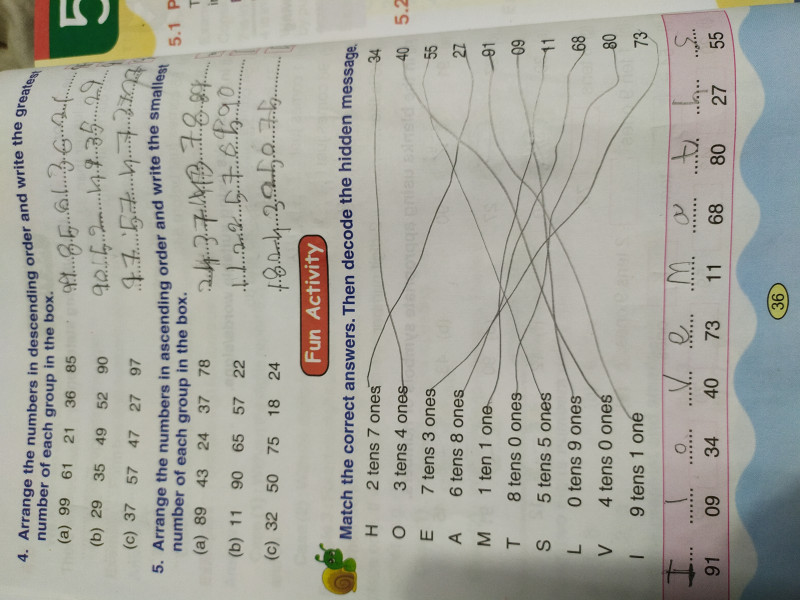 5
5.1 P
5.2
4. Arrange the numbers in descending order and write the greatest
number of each group in the box.
(a) 99 61 21 36 85
(b) 29 35 49 52 90
(c) 37 57 47 27 97
5. Arrange the numbers in ascending order and write the smallest
number of each group in the box.
(a) 89 43 24 37 78
(b) 11 90 65 57 22
(c) 32 50 75 18 24
Fun Activity
Match the correct answers. Then decode the hidden message.
H 2 tens 7 ones 34
O 3 tens 4 ones 40
E 7 tens 3 ones 55
A 6 tens 8 ones 27
M 1 ten 1 one 91
T 8 tens 0 ones 09
S 5 tens 5 ones 11
L 0 tens 9 ones 68
V 4 tens 0 ones 80
I 9 tens 1 one 73
I l o v e m a t h s
91 09 34 40 73 11 68 80 27 55
36